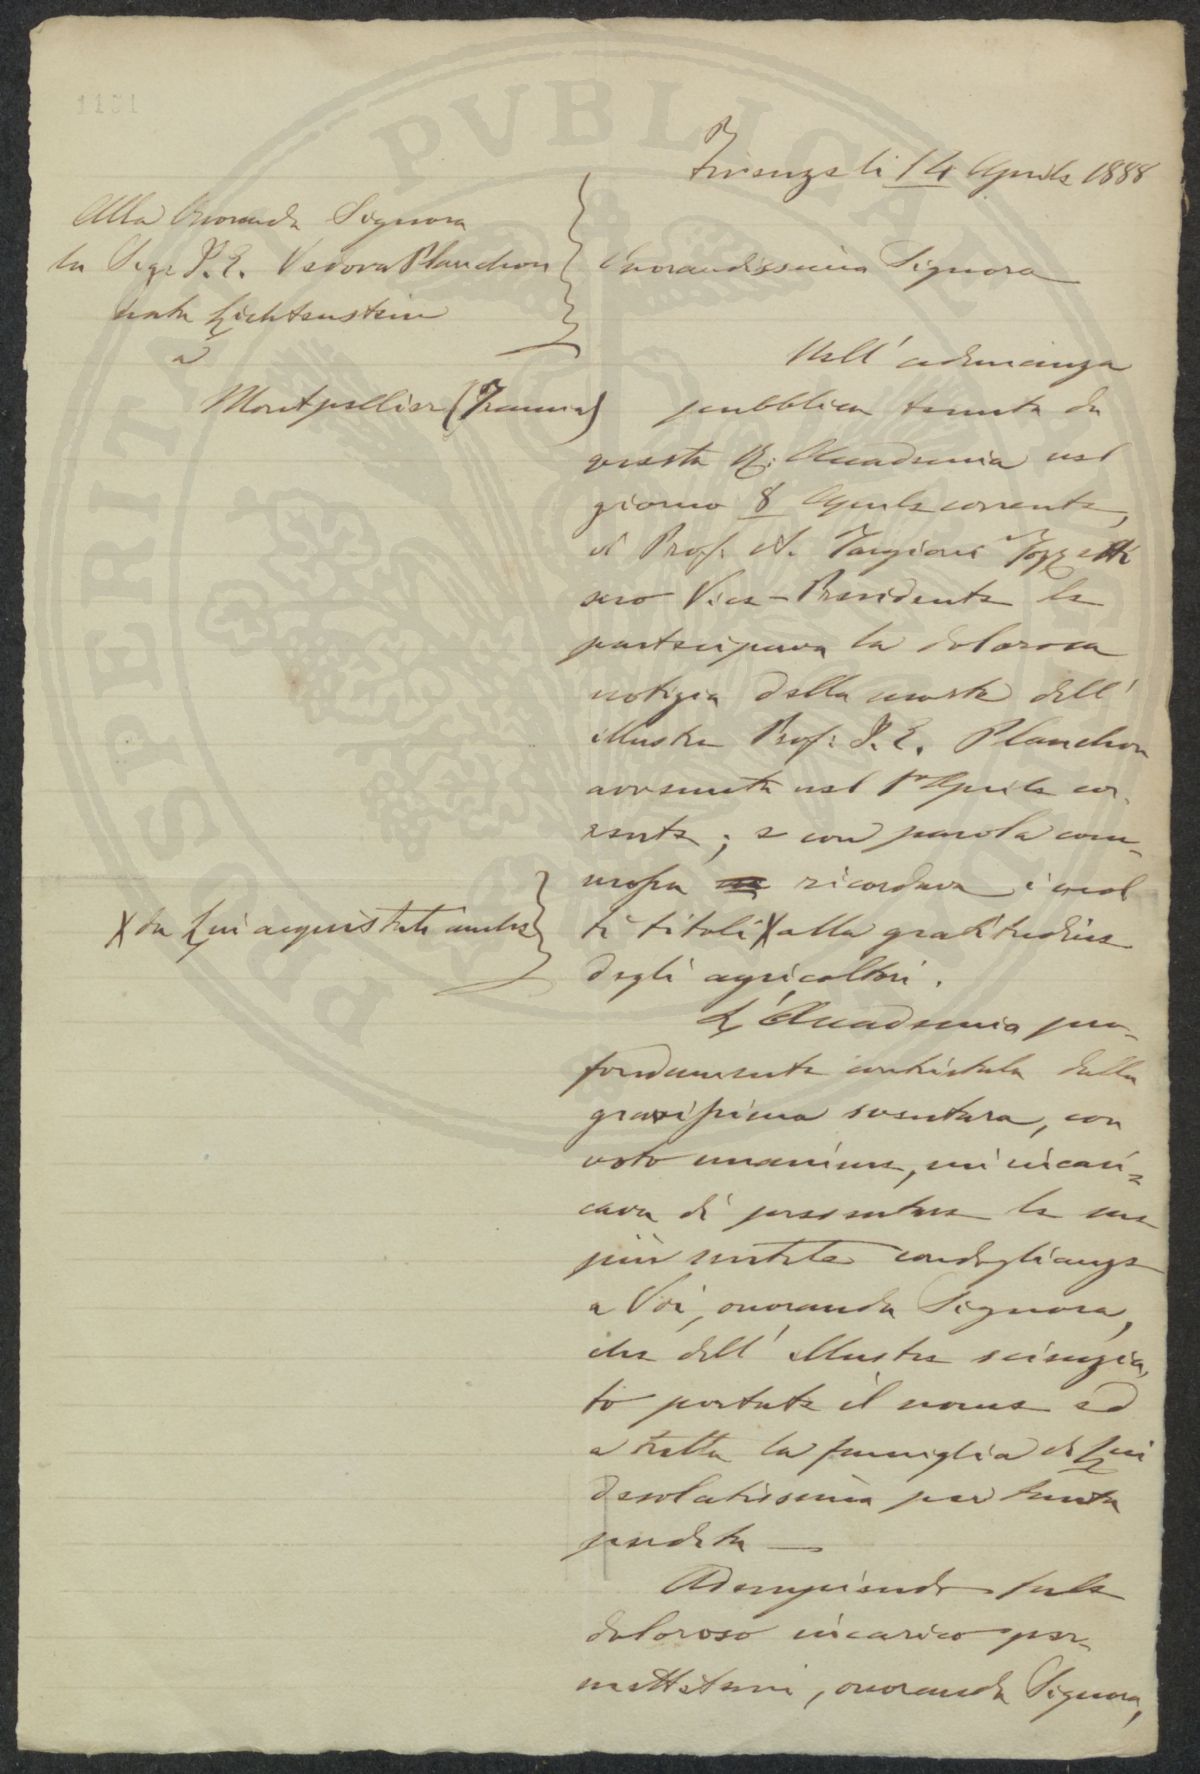 1101
Firenze li 14 Aprile 1888
Alla Onoranda Signora
la Sigra J. E. Vedova Planchon
nata Lichtenstein
a
Montpellier (Francia)
Onorandissima Signora
Nell' adunanza
pubblica tenuta da
questa R. Accademia nel
giorno 8 Aprile corrente,
il Prof. A. Targioni Tozzetti
suo Vice-Presidente le
partecipava la dolorosa
notizia della morte dell'
illustre Prof. J. E. Planchon
avvenuta nel 1° Aprile cor-
rente; e con parola com-
mossa ricordava i mol
ti titoli X alla gratitudine
X da Lui acquistati anche
degli agricoltori.
L'Accademia pro-
fondamente contristata dalla
gravissima sventura, con
voto unanime, mi incari-
cava di presentare le sue
più sentite condoglianze
a Voi, onoranda Signora,
che dell' illustre scienzia-
to portate il nome ed
a tutta la famiglia di Lui
desolatissima per tanta
perdita —
Adempiendo tale
doloroso incarico per-
mettetemi, onoranda Signora,
PVBLICAE
PROSPERITATI